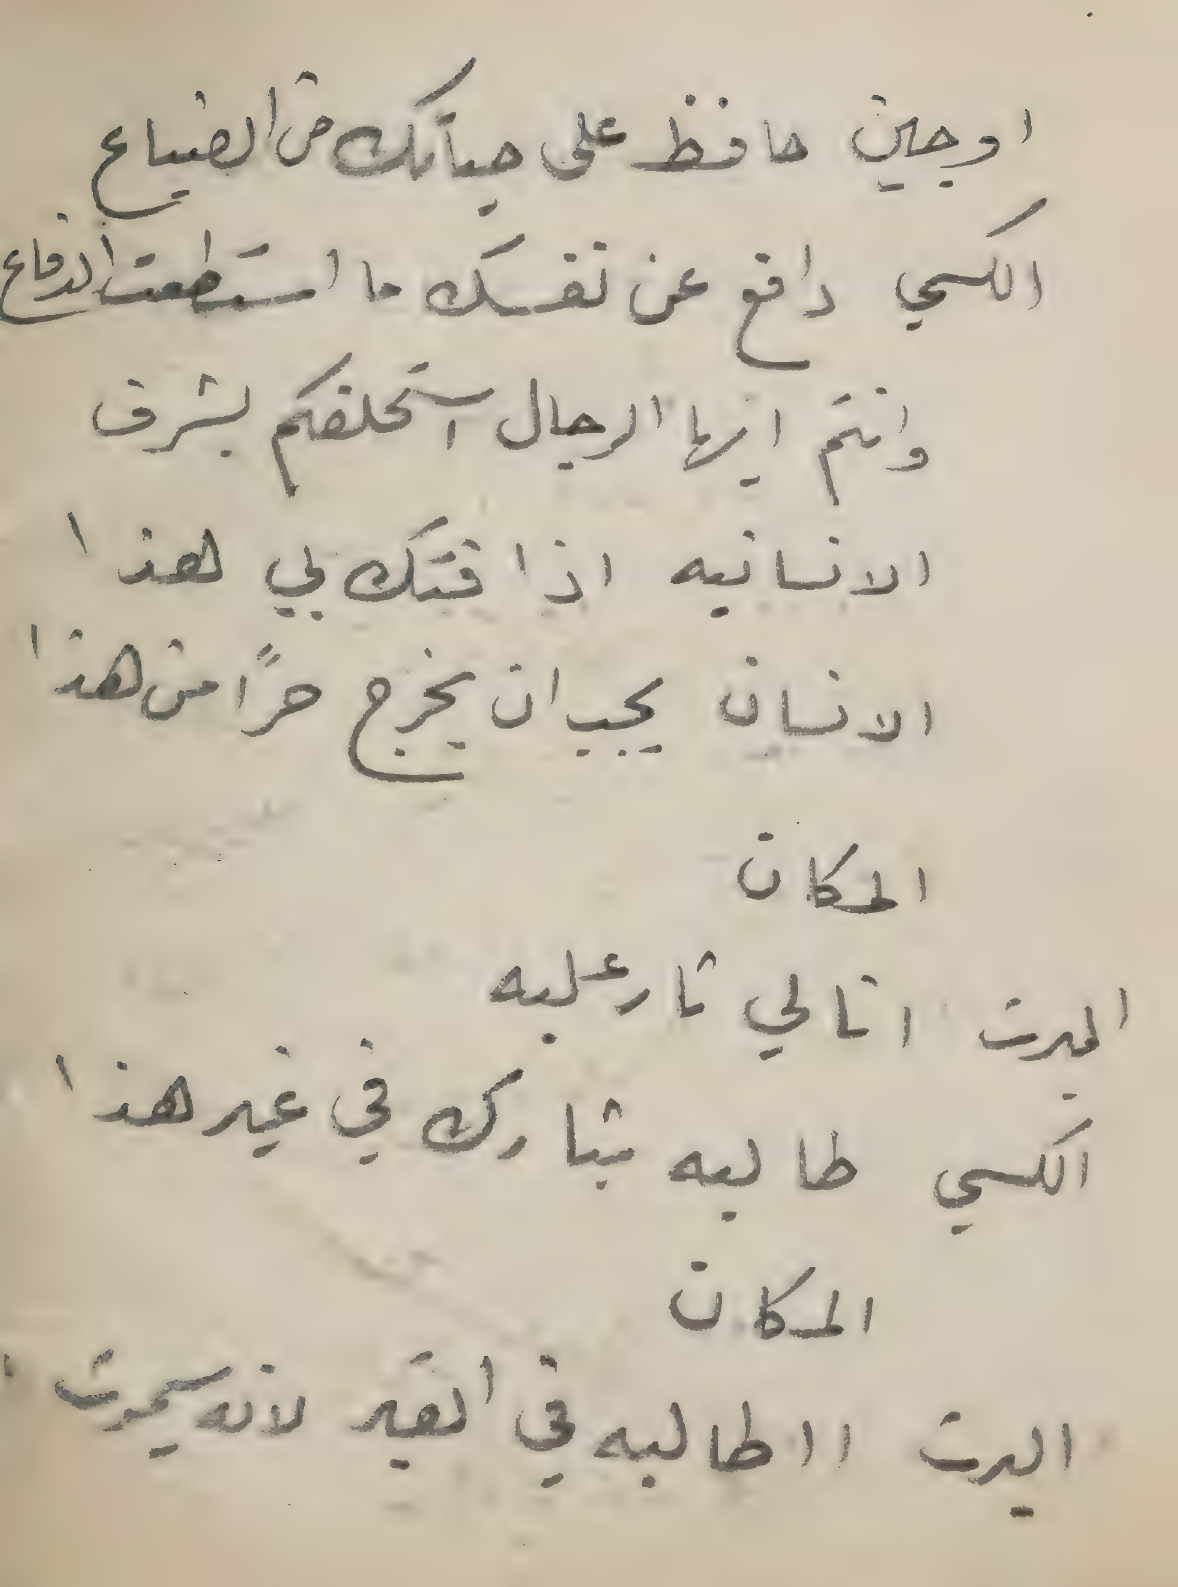 اوجين حافظ على حياتك من الضياع
الكسي دافع عن نفسك ما استطعت الدفاع
وانتم ايها الرجال استحلفكم بشرف
الانسانيه اذا فتك بي هذا
الانسان يجب ان يخرج حرًا من هذا
المكان
البرت انا لي ثار عليه
الكسي طالبه بثارك في غير هذا
المكان
البرت ااطالبه في القبر لانه سيموت